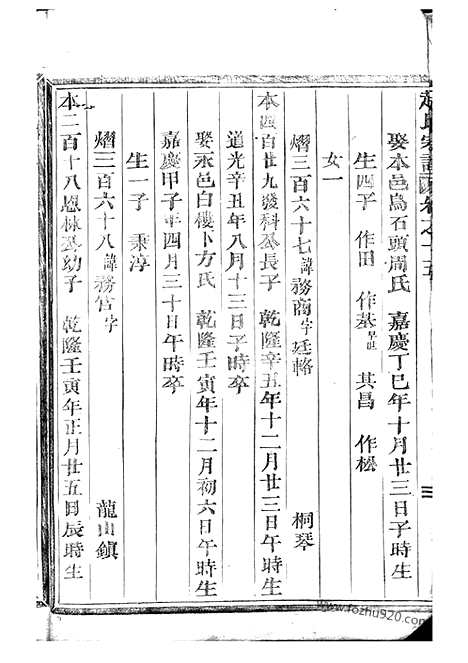 氏家譜 卷之十五
娶本邑烏石頭周氏 嘉慶丁巳年十月廿三日子時生
生四子 作田 作基早世 其昌 作松
女一
熠三百六十七諱務商字廷輅 桐琴
本四百廿九發科公長子 乾隆辛丑年十二月廿三日午時生
道光辛丑年八月十三日子時卒
娶永邑白樓卜方氏 乾隆壬寅年十二月初六日午時生
嘉慶甲子年四月三十日午時卒
生一子 秉淳
熠三百六十八諱務官字 龍山鎮
本二百十八恩林公幼子 乾隆壬寅年正月廿五日辰時生
www.fozhu920.com